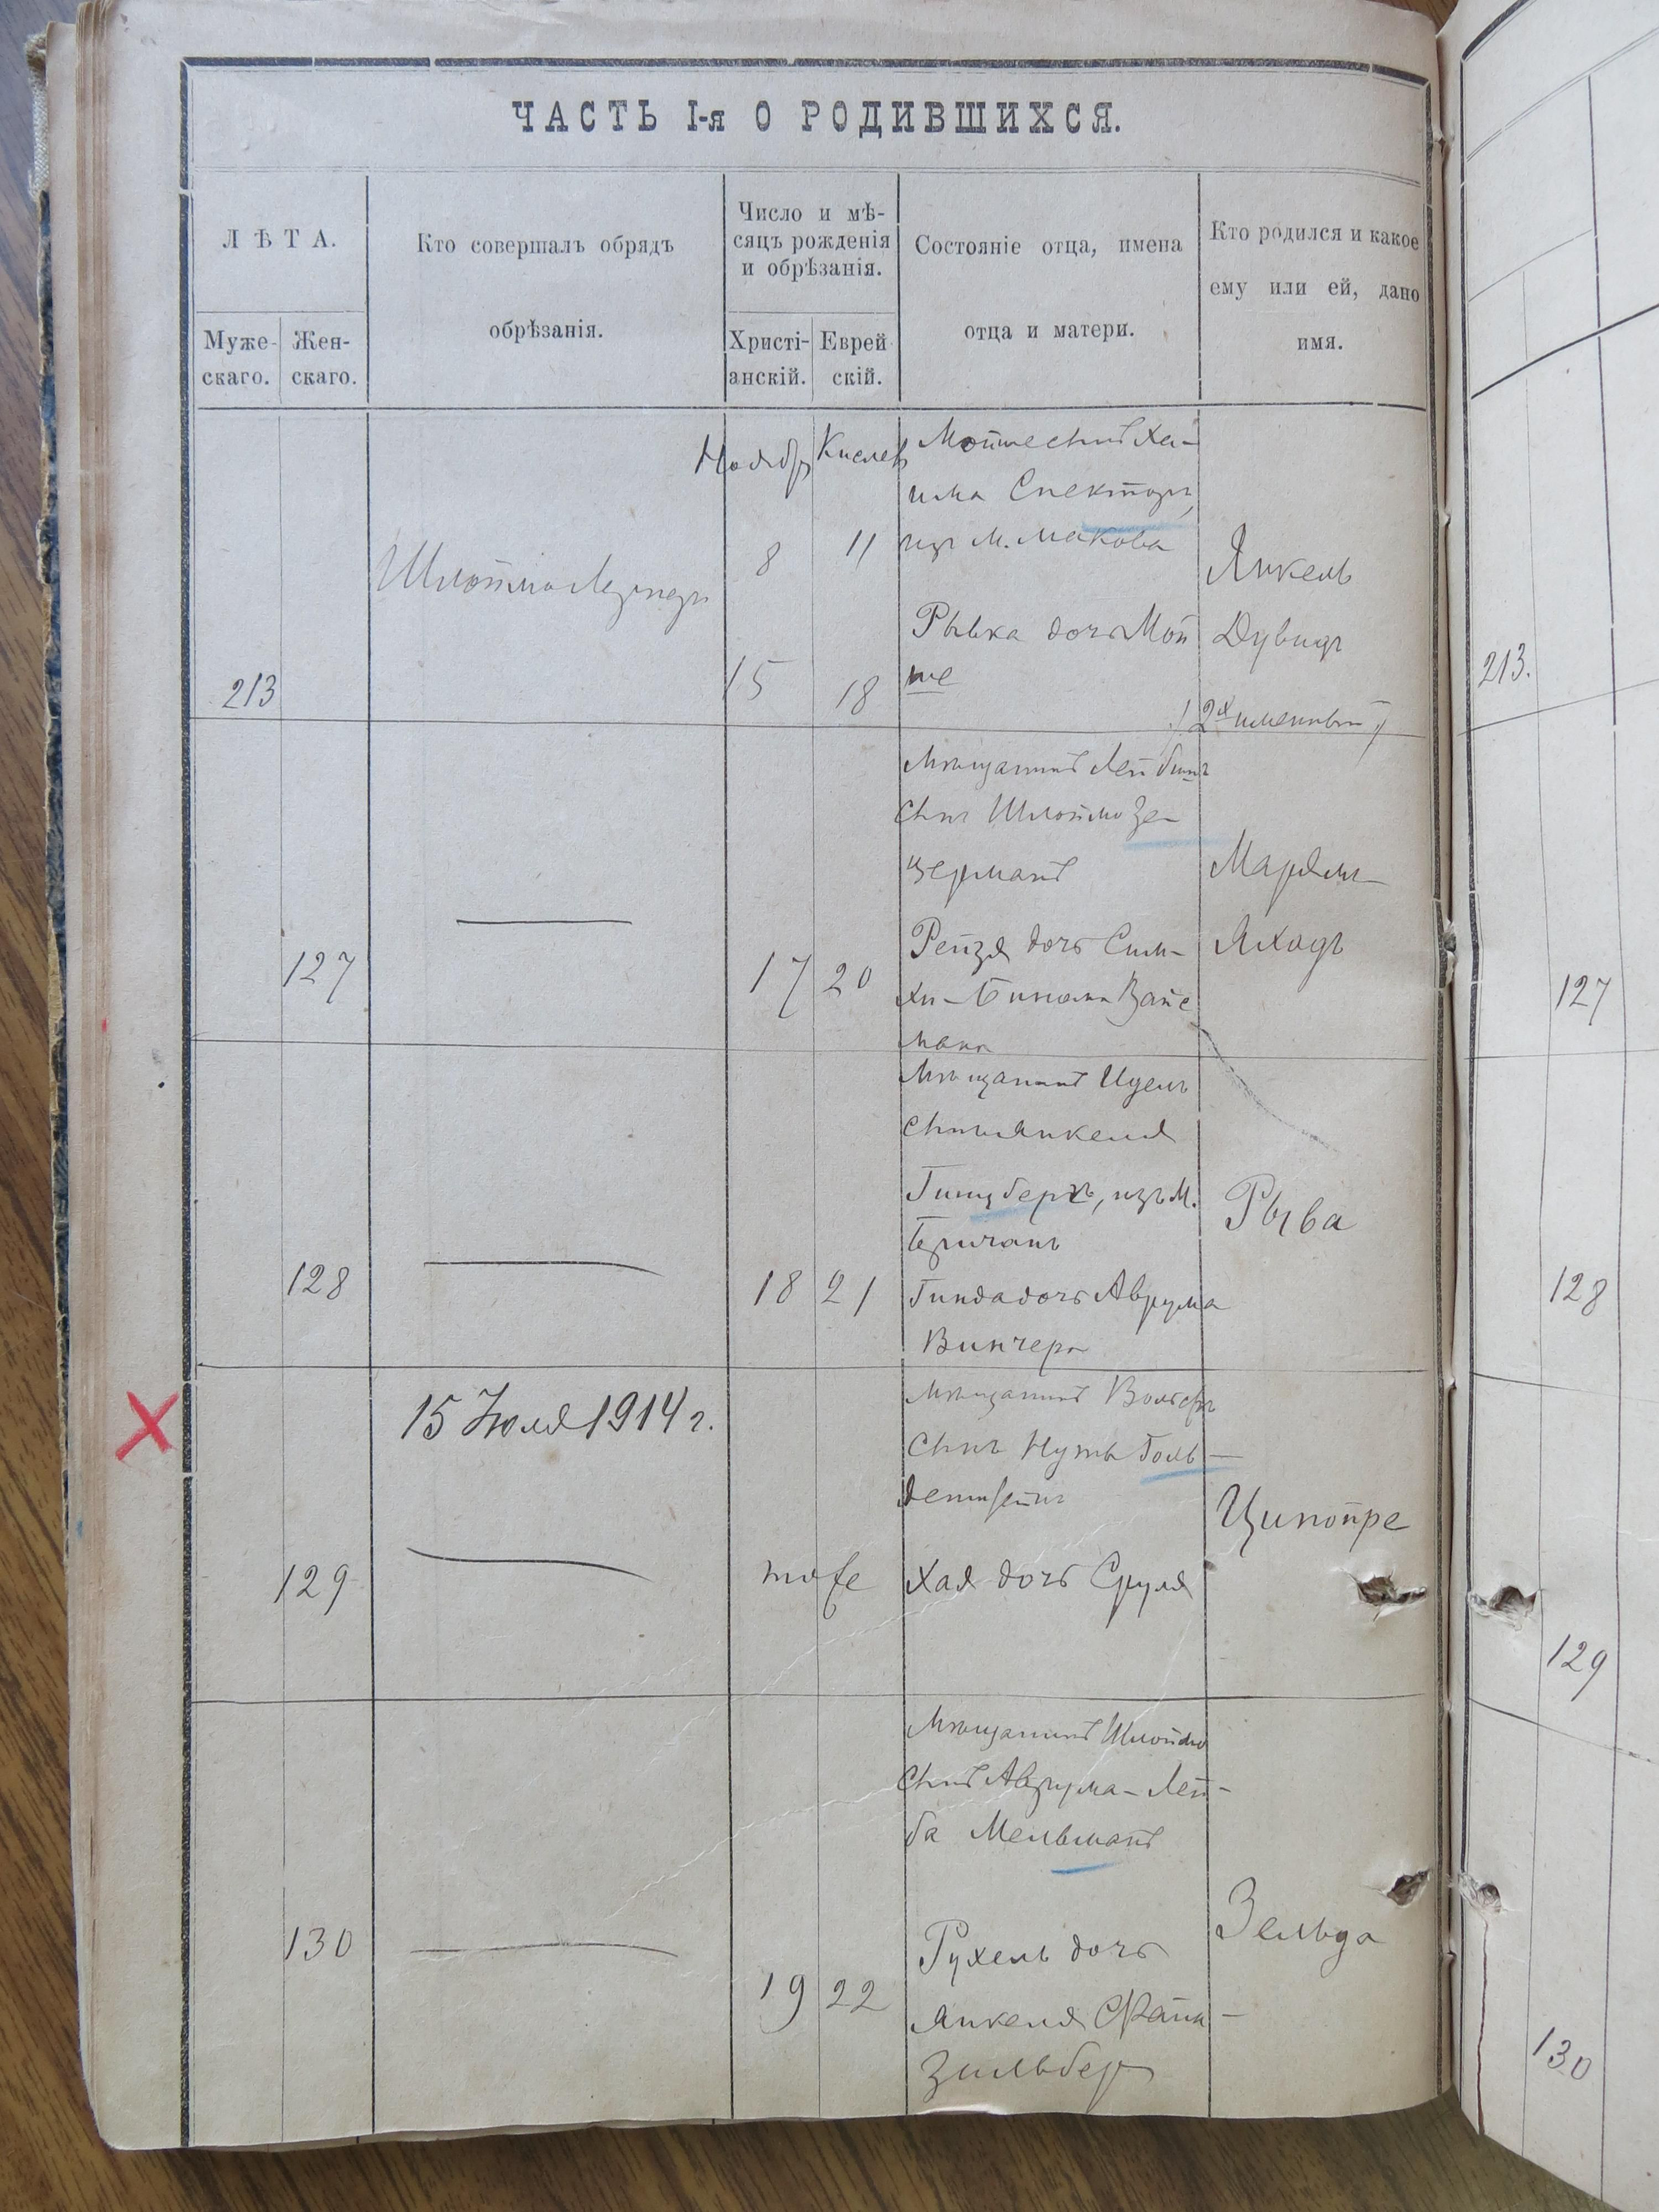 ЧАСТЬ I-я О РОДИВШИХСЯ.
ЛѢТА.
Муже-
скаго.
Жен-
скаго.
Кто совершалъ обрядъ
обрѣзанія.
Число и мѣ-
сяцъ рожденія
и обрѣзанія.
Христі-
анскій.
Еврей
скій.
Состояніе отца, имена
отца и матери.
Кто родился и какое
ему или ей, дано
имя.
213
Шлойма
Ноябр
8
15
Кислев
11
18
Мойше сынъ Ха-
има Спекторъ,
изъ м. Макова
Рывка дочь Мой
ше
Янкель
Дувидъ
/2х именный/
213.
127
17
20
Мѣщанинъ Лейбишъ
сынъ Шлоймо Зе-
церманъ
Рейзя дочь Сим-
хи-Бинома Вайс
мана
Марямъ-
Яходъ
127
128
18
21
Мѣщанинъ Идель
сынъ Янкеля
Гинцбергъ, изъ м.
Бричанъ
Гинда дочь Аврума
Винчера
Рыва
128
15 Июля 1914 г.
129
тоже
Мѣщанинъ
сынъ Нуты Голь-
денштейнъ
Хая дочь Сруля
Ципойре
129
130
19
22
Мѣщанинъ Шлоймо
сынъ Аврума-Лей-
ба Мельманъ
Рухель дочь
Янкеля Файн-
зильбер
Зельда
130